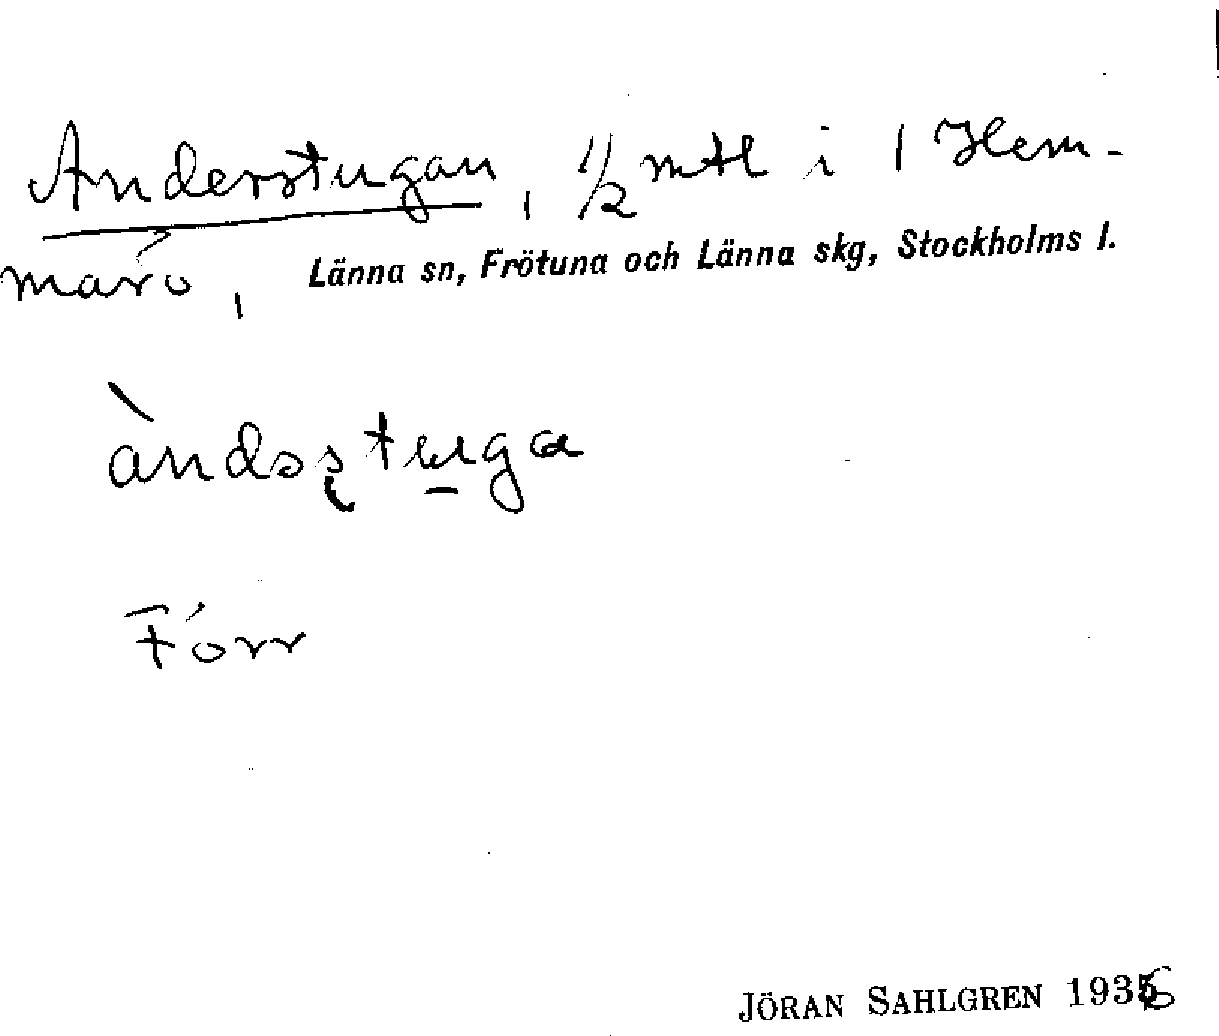 Anderstugan, 1/2 mtl i 1 Hem-
marö, Länna sn, Frötuna och Länna skg, Stockholms l.
àndosṭu̲ga
Förr
JÖRAN SAHLGREN 1936